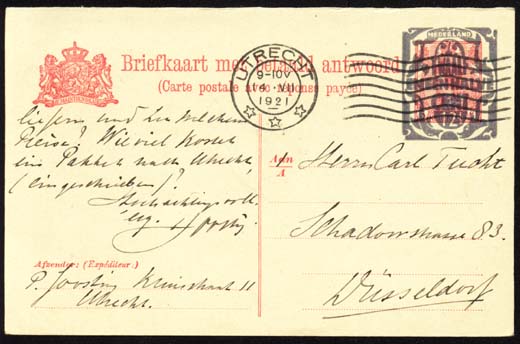 Briefkaart met betaald antwoord
(Carte postale avec réponse payée)
NEDERLAND
UTRECHT
9-10V
14 VII
1921
liefern und zu welchem
Preise? Wieviel kostet
ein Pakket nach Utrecht
(eingeschrieben)?
Hochachtungsvoll
Aan
A
Herrn Carl Tucht
Schadowstrasse 83.
Düsseldorf
Afzender: (Expéditeur:)
P. Joosting 11
Utrecht.